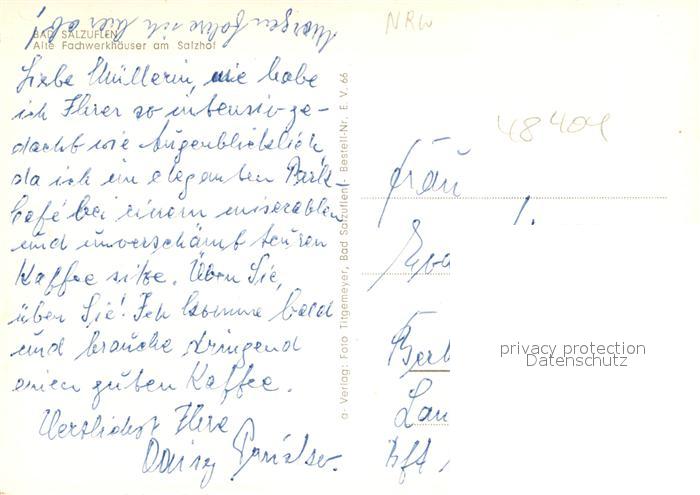 Morgen fahre ich hier ab!
BAD SALZUFLEN
Alte Fachwerkhäuser am Salzhof
Liebe Müllerin, nie habe
ich Ihrer so intensiv ge-
dacht wie Augenblicklich,
da ich im eleganten Park-
kafé bei einem miserablen
und unverschämt teuren
Kaffee sitze. Üben Sie,
üben Sie! Ich komme bald
und brauche dringend
einen guten Kaffee.
Herzlichst Ihre
a- Verlag: Foto Titgemeyer, Bad Salzuflen - Bestell-Nr. E. V. 66
NRW
48404
Frau
1.
privacy protection
Datenschutz